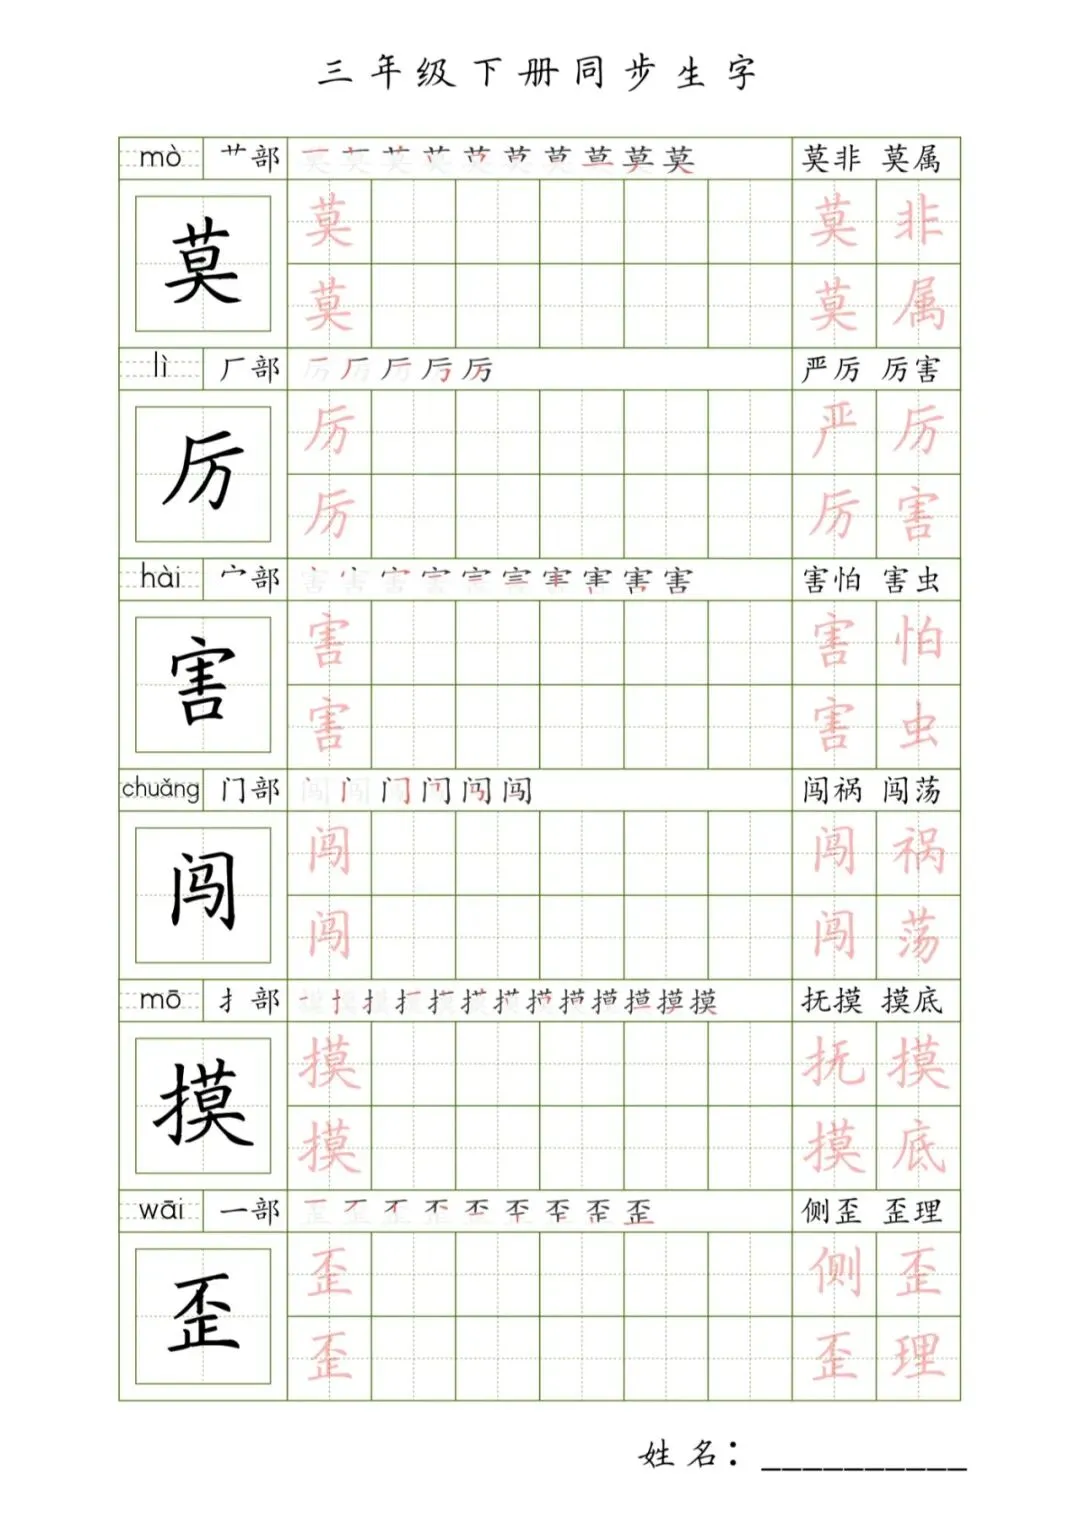 三年级下册同步生字
mò 艹部 莫莫莫莫莫莫莫莫莫莫 莫非 莫属
莫 莫 莫非
莫 莫属
lì 厂部 厉厉厉厉厉 严厉 厉害
厉 厉 严厉
厉 厉害
hài 宀部 害害害害害害害害害害 害怕 害虫
害 害 害怕
害 害虫
chuǎng 门部 闯闯闯闯闯闯 闯祸 闯荡
闯 闯 闯祸
闯 闯荡
mō 扌部 摸摸摸摸摸摸摸摸摸摸摸摸摸 抚摸 摸底
摸 摸 抚摸
摸 摸底
wāi 一部 歪歪歪歪歪歪歪歪歪 侧歪 歪理
歪 歪 侧歪
歪 歪理
姓名：__________